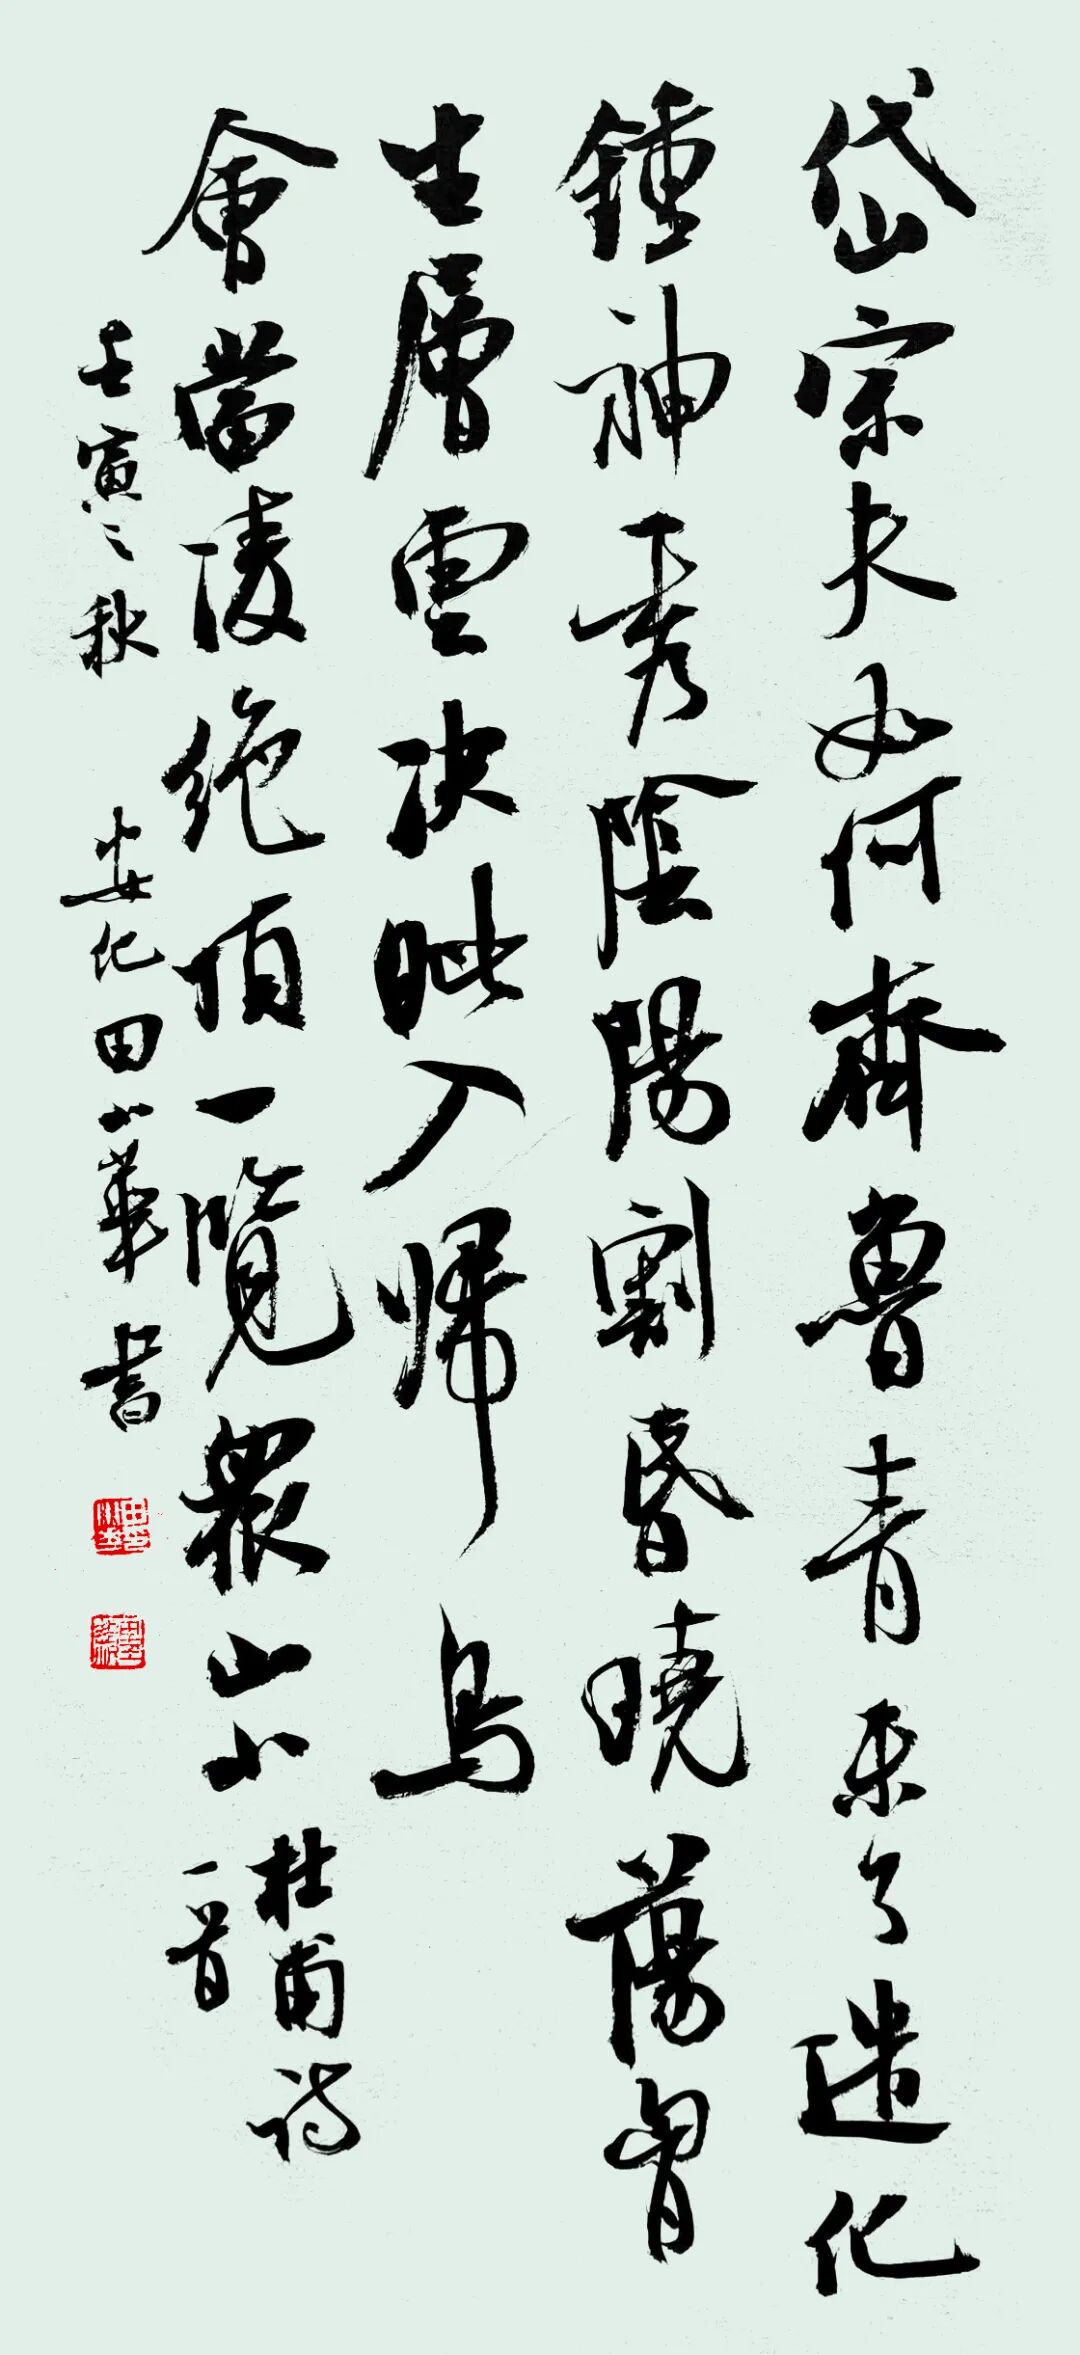 岱宗夫如何齊魯青未了造化
鍾神秀陰陽割昏曉蕩胷
生層雲決眦入歸鳥
會當陵絶頂一覽衆山小
杜甫詩
一首
壬寅之秋 安化田小華書